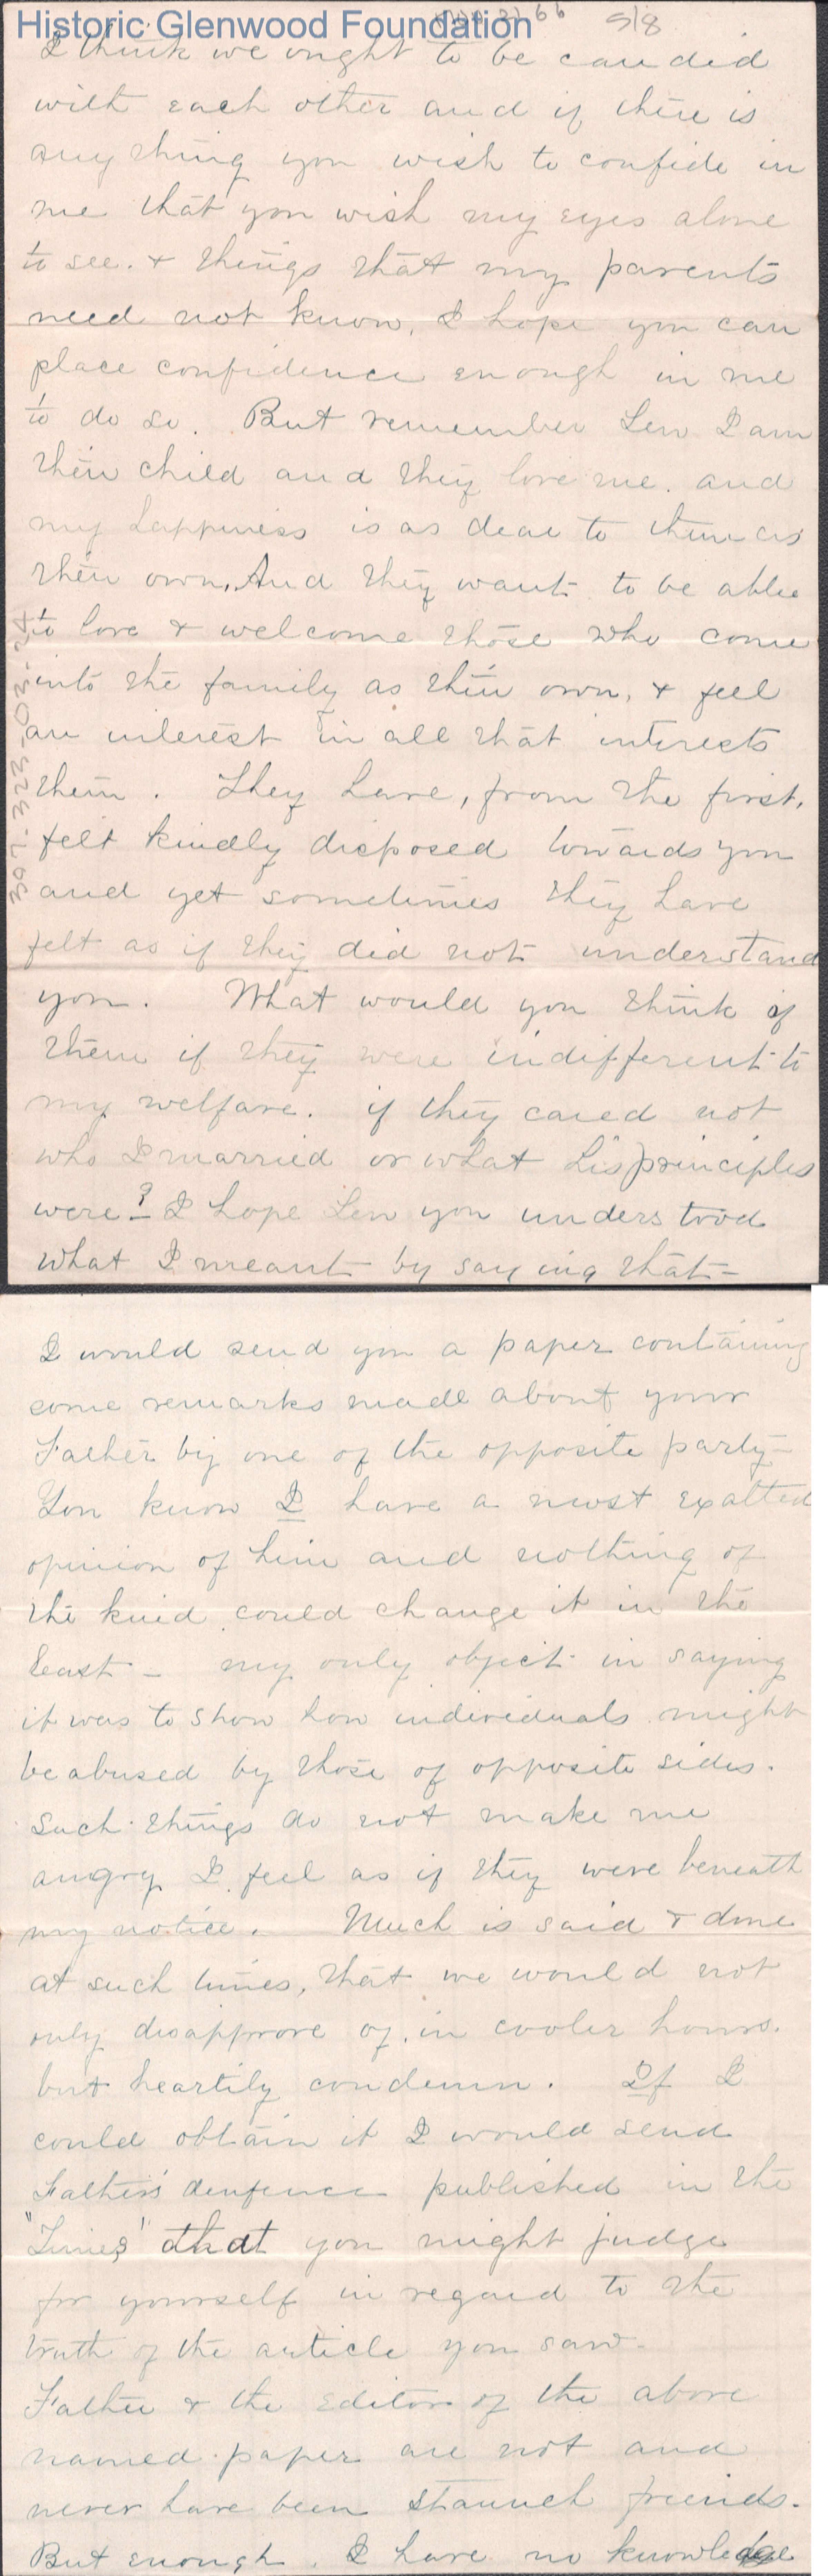 Historic Glenwood Foundation
66 5/8
I think we ought to be candid
with each other and if there is
any thing you wish to confide in
me that you wish my eyes alone
to see. & things that my parents
need not know, I hope you can
place confidence enough in me
to do so. But remember Lew I am
their child and they love me. and
my happiness is as dear to them as
their own. And they want to be able
to love & welcome those who come
into the family as their own, & feel
an interest in all that interests
them. They have, from the first,
felt kindly disposed towards you
and yet sometimes they have
felt as if they did not understand
you. What would you think of
them if they were indifferent to
my welfare. if they cared not
who I married or what his principles
were? I hope Lew you understood
what I meant by saying that
307.323-03-24
I would send you a paper containing
some remarks made about your
Father by one of the opposite party-
You know I have a most exalted
opinion of him and nothing of
the kind could change it in the
least - my only object in saying
it was to show how individuals might
be abused by those of opposite sides.
Such things do not make me
angry I feel as if they were beneath
my notice. Much is said & done
at such times, that we would not
only disapprove of, in cooler hours.
but heartily condemn. If I
could obtain it I would send
Father's denfence published in the
"Times" that you might judge
for yourself in regard to the
truth of the article you saw-
Father & the editor of the above
named paper are not and
never have been staunch friends.
But enough. I have no knowledge